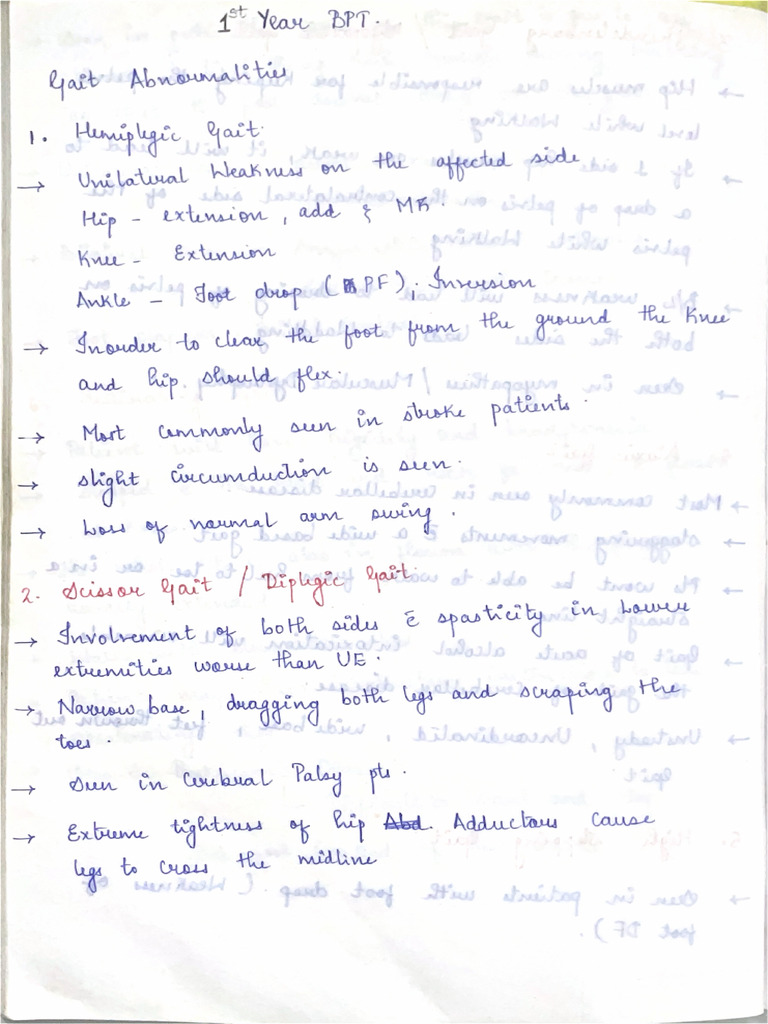 1st Year BPT.
Gait Abnormalities
1. Hemiplegic Gait.
→ Unilateral Weakness on the affected side
Hip - extension, add & MR.
Knee - Extension
Ankle - Foot drop (PF), Inversion
→ Inorder to clear the foot from the ground the Knee
and hip should flex.
→ Most commonly seen in stroke patients.
→ slight circumduction is seen.
→ Loss of normal arm swing.
2. Scissor Gait / Diplegic Gait.
→ Involvement of both sides c̄ spasticity in Lower
extremities worse than UE.
→ Narrow base, dragging both legs and scraping the
toes.
→ Seen in Cerebral Palsy pts.
→ Extreme tightness of hip Abd. Adductors cause
legs to cross the midline